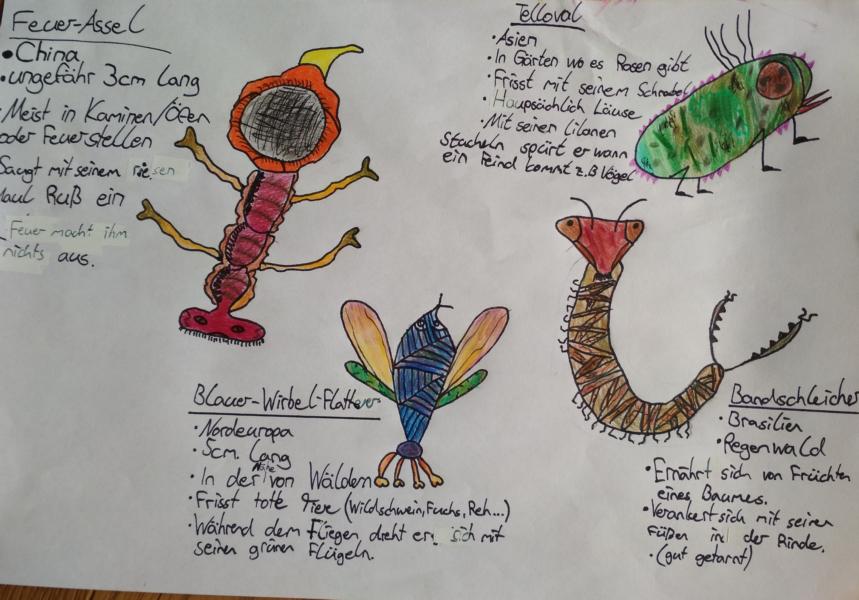 Feuer-Assel
• China
• ungefähr 3cm lang
• Meist in Kaminen/Öfen
oder Feuerstellen
Saugt mit seinem riesen
Maul Ruß ein
Feuer macht ihm
nichts aus.
Telloval
• Asien
• In Gärten wo es Rosen gibt
• Frisst mit seinem Schnabel
• Haupsächlich Läuse
• Mit seinen lilanen
Stacheln spürt er wann
ein Feind kommt z.B Vögel
Blauer-Wirbel-Flatterer
• Nordeuropa
• 5cm lang
• In der Nähe von Wäldern
• Frisst tote Tiere (Wildschwein, Fuchs, Reh...)
• Während dem Fliegen, dreht er sich mit
seinen grünen Flügeln.
Bandschleicher
• Brasilien
• Regenwald
• Ernährt sich von Früchten
eines Baumes.
• Verankert sich mit seinen
Füßen in der Rinde.
• (gut getarnt)